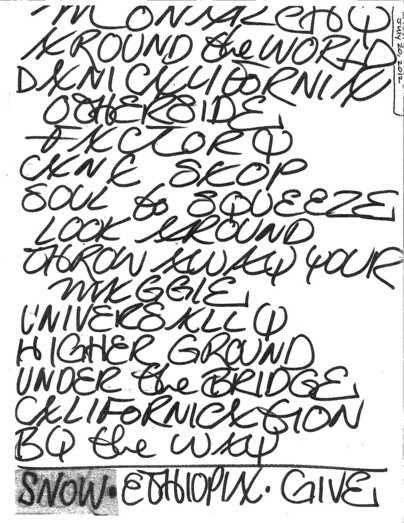 July 20, 2012
MONARCHY
AROUND the WORLD
DANI CALIFORNIA
OTHERSIDE
FACTORY
CANT STOP
SOUL to SQUEEZE
LOOK AROUND
THROW AWAY YOUR
MAGGIE
UNIVERSALLY
HIGHER GROUND
UNDER the BRIDGE
CALIFORNICATION
BY the WAY
SNOW · ETHIOPIA · GIVE